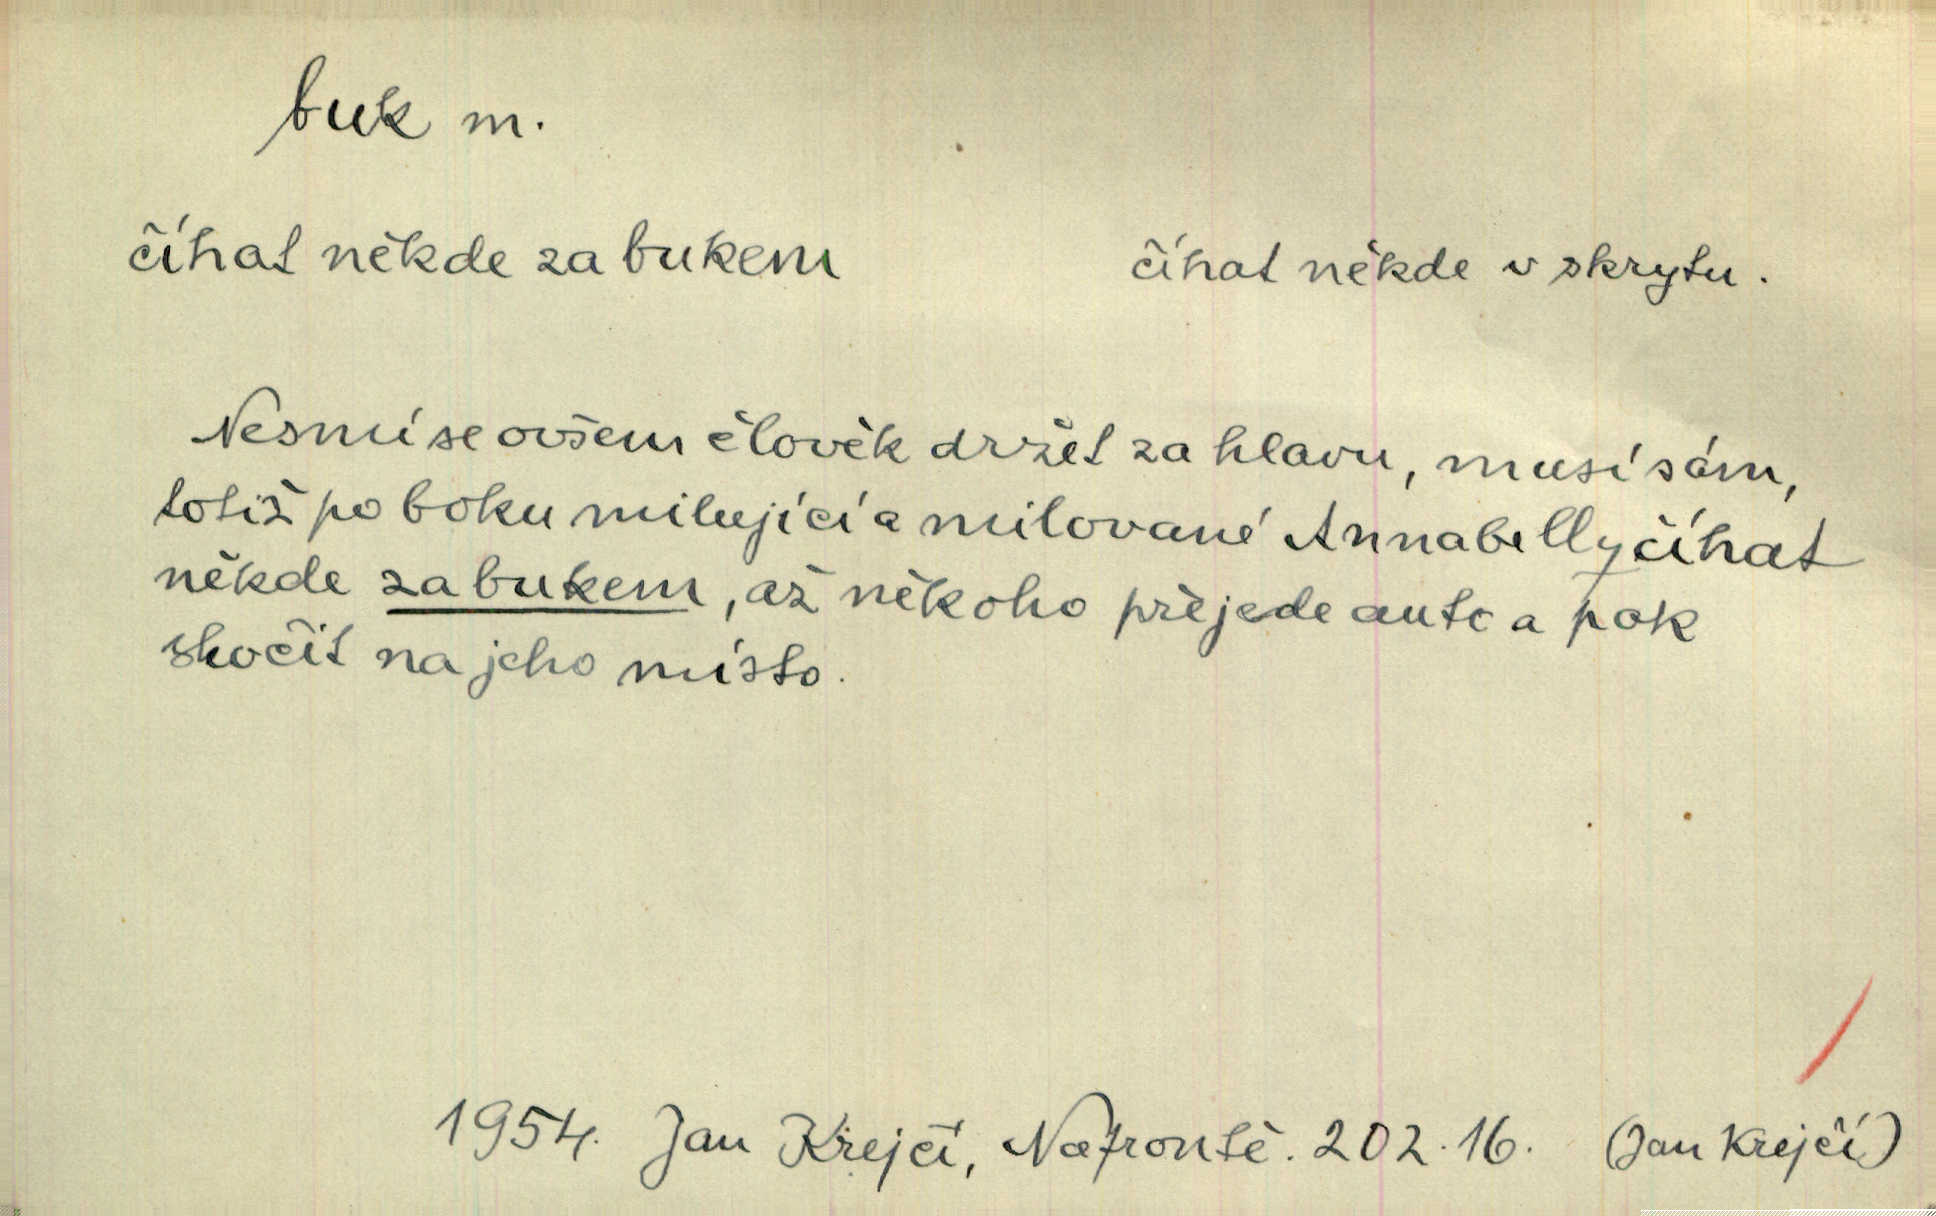 buk m.
číhat někde za bukem číhat někde v skrytu.
Nesmí se ovšem člověk držet za hlavu, musí sám,
totiž po boku milující a milované Annabelly číhat
někde za bukem, až někoho přejede auto a pak
skočit na jeho místo.
1954. Jan Krejčí, Na frontě. 202.16. (Jan Krejčí)